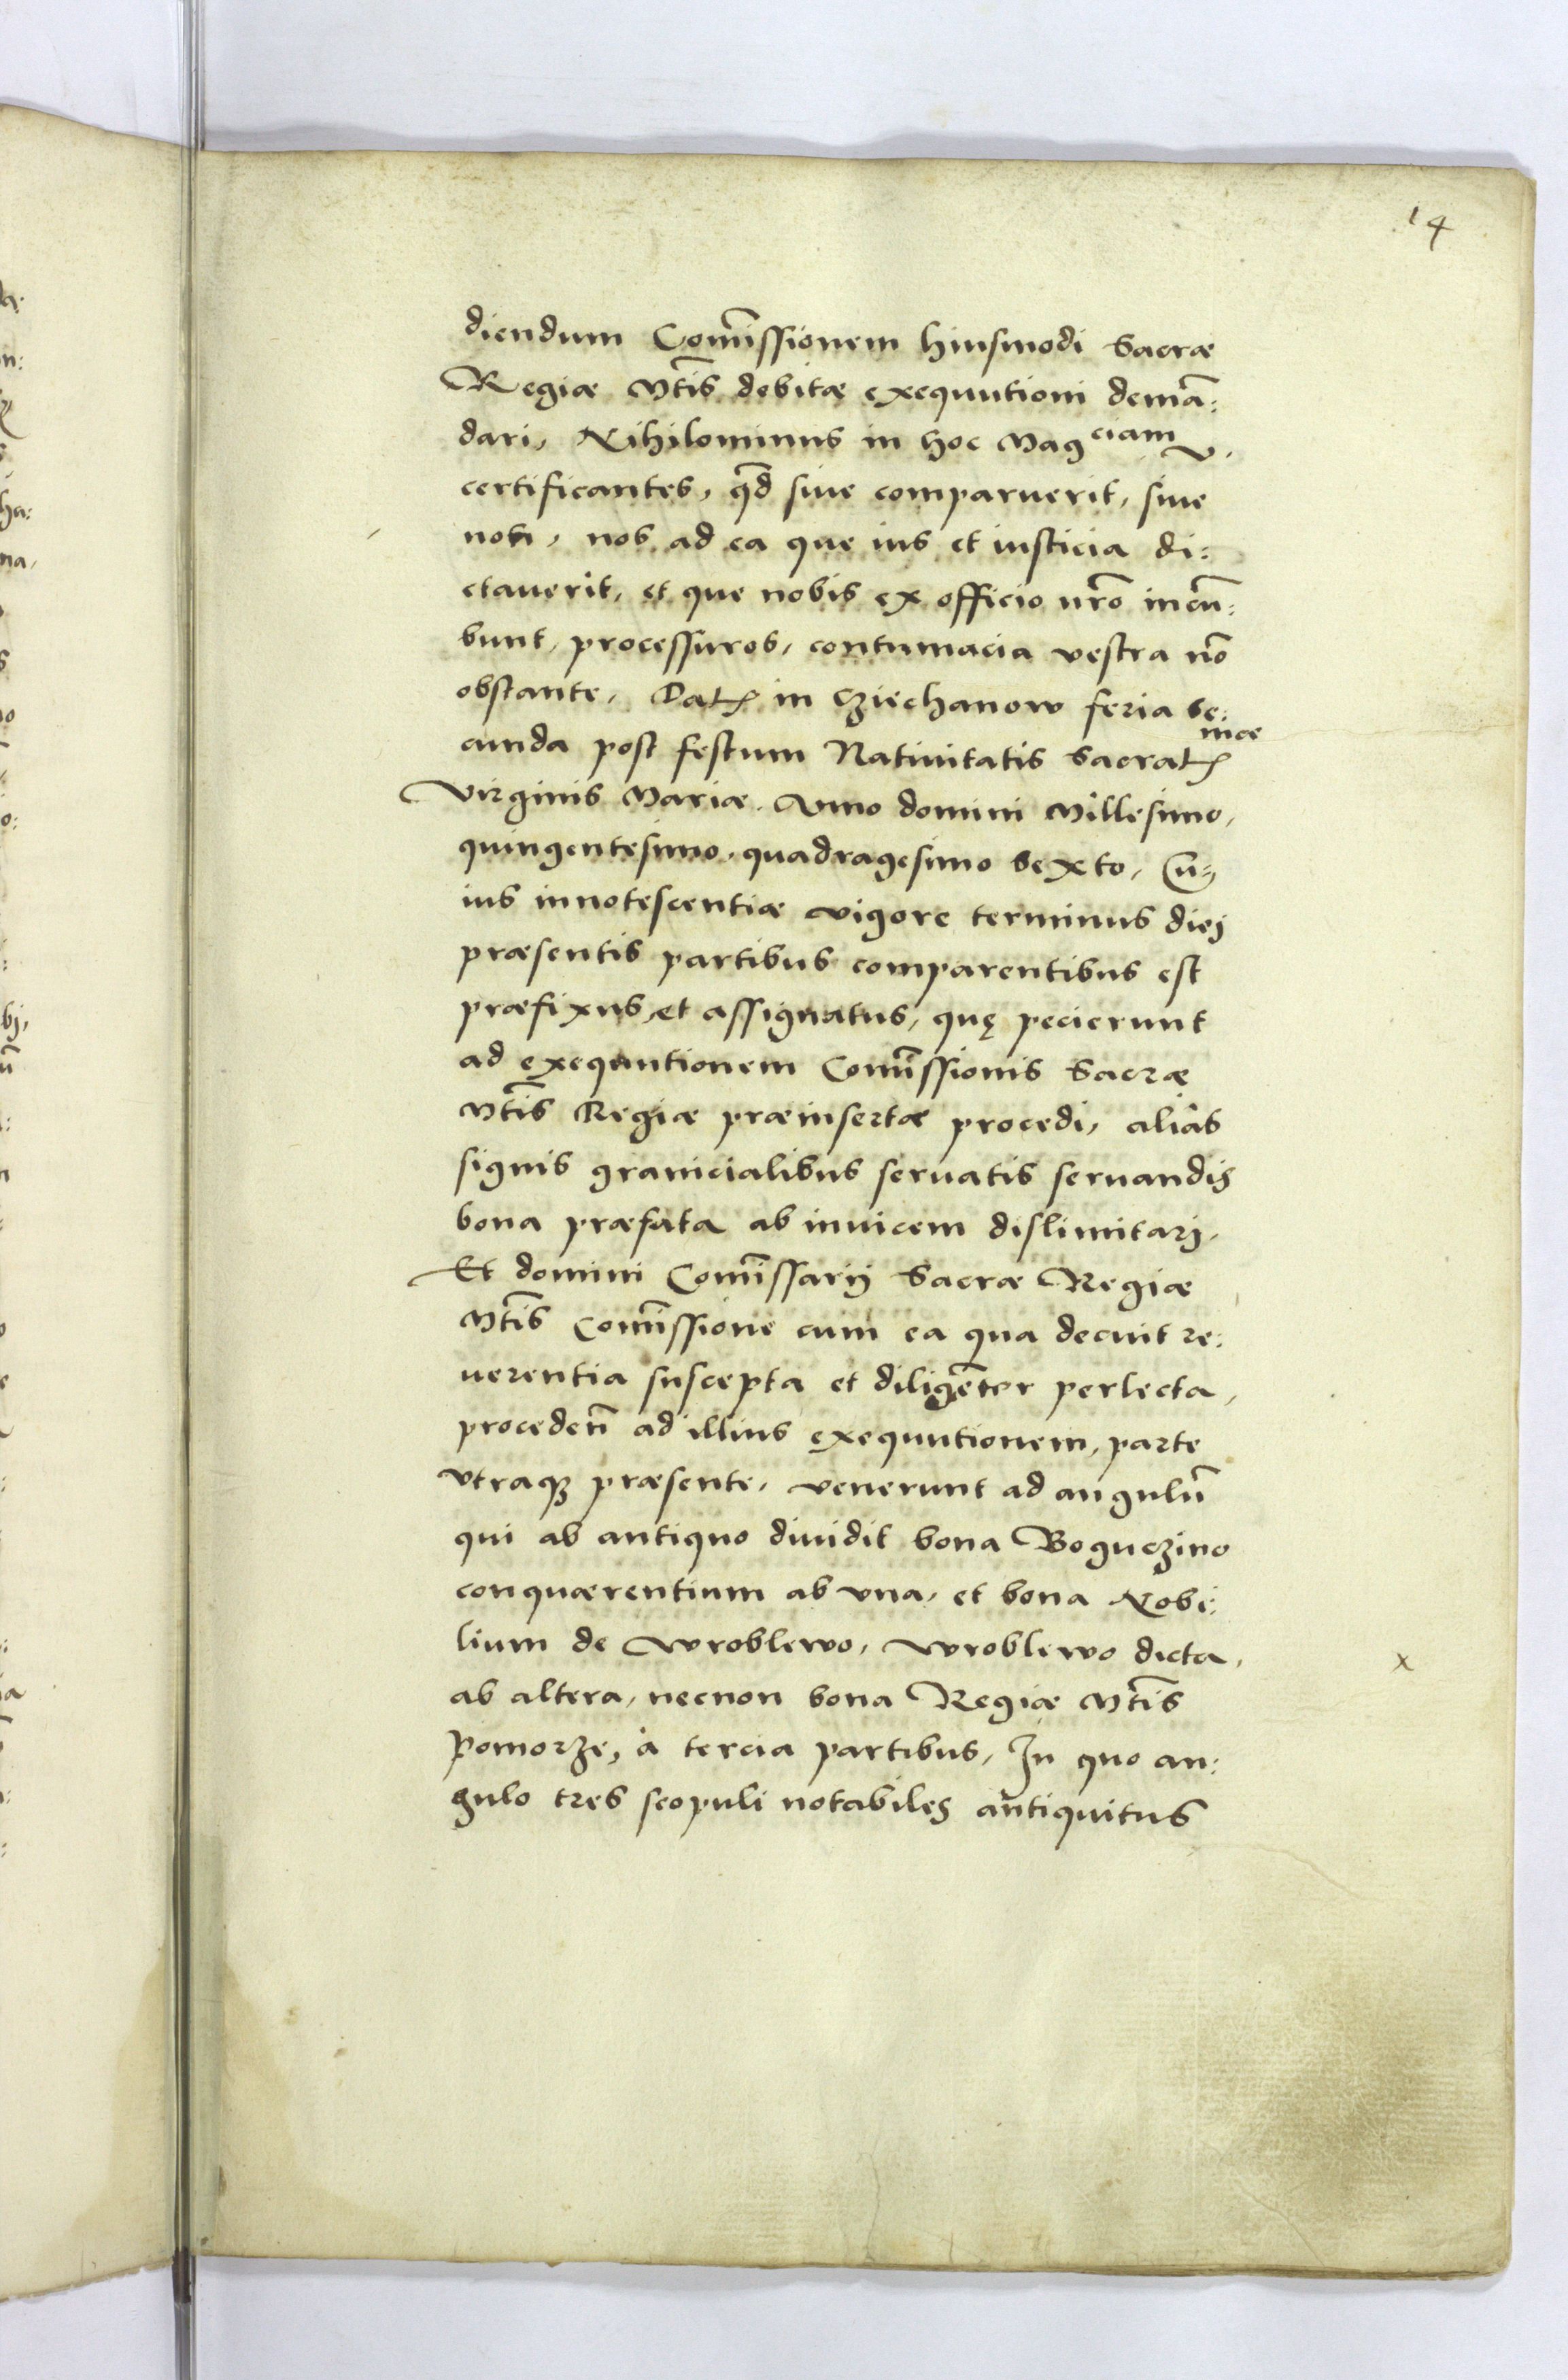 14
diendum Com̃issionem hiusmodi Sacræ
Regiæ Mt̃is debitæ exequutioni demã:
dari, Nihilominus in hoc Mag ciam v.
certificantes, qd̃ siue comparuerit, siue
non, nos ad ea que ius et iusticia di:
ctauerit, et que nobis ex officio nr̃o incũ:
bunt, processuros, contumacia vestra nõ
obstante, Dat in Cziechanow feria se:
cunda post festum Natiuitatis Sacrat mæ
Virginis Mariæ. Anno domini Millesimo,
quingentesimo, quadragesimo sexto, Cu=
ius innotescentiæ vigore terminus diej
præsentis partibus comparentibus est
præfixus, et assignatus, quę pecierunt
ad exequutionem Com̃issionis Sacræ
Mt̃is Regiæ præinsertæ procedi, aliàs
signis granicialibus seruatis seruandis
bona præfata ab inuicem dislimitarj.
Et domini Com̃issarij Sacræ Regiæ
Mt̃is Com̃issione cum ea qua decuit re:
uerentia suscepta et diligẽter perlecta,
proceden̄ ad illius exequutionem, parte
vtraqꝫ præsente, venerunt ad angulũ
qui ab antiquo diuidit bona Boguczino
conquærentium ab vna, et bona Nobi:
lium de Wroblewo, Wroblewo dicta,
x
ab altera, necnon bona Regiæ Mt̃is
Pomorze, à tercia partibus, In quo an:
gulo tres scopuli notabiles antiquitus